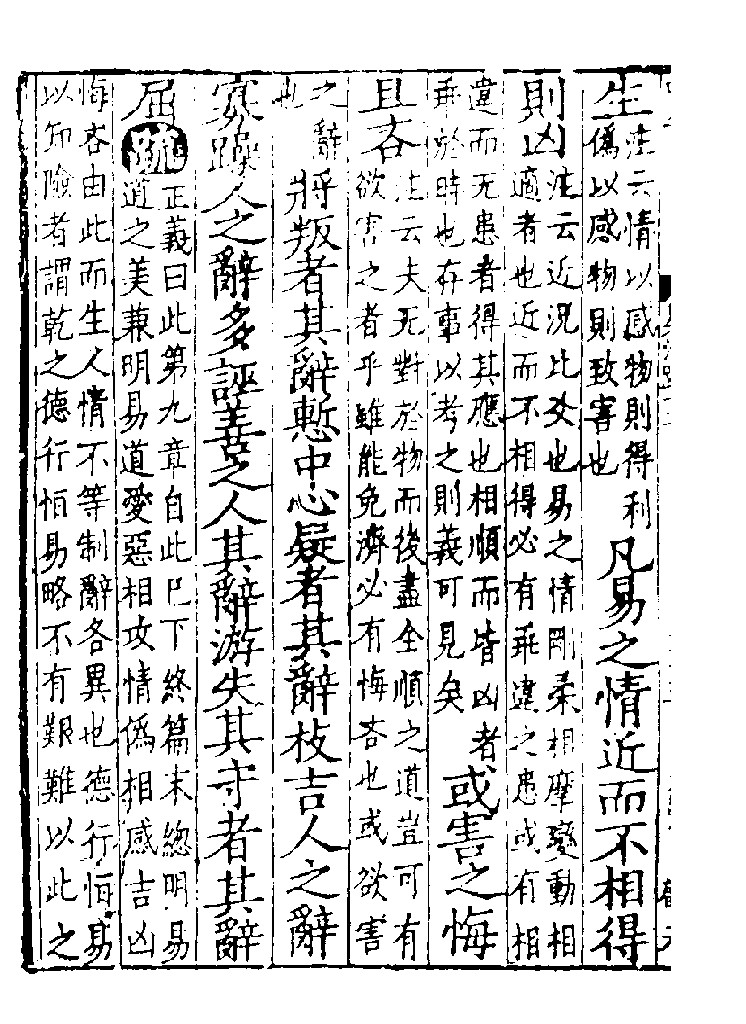 生注云情以感物則得利偽以感物則致害也凡易之情近而不相得
則凶注云近況比爻也易之情剛柔相摩變動相適者也近而不相得必有乖違之患或有相
違而无患者得其應也相順而皆凶者乖於時也存事以考之則義可見矣或害之悔
且吝注云夫无對於物而後盡全順之道豈可有欲害之者乎雖能免濟必有悔吝也或欲害
之辭也將叛者其辭慙中心疑者其辭枝吉人之辭
寡躁人之辭多誣善之人其辭游失其守者其辭
屈疏正義曰此第九章自此已下終篇末總明易道之美兼明易道愛惡相攻情偽相感吉凶
悔吝由此而生人情不等制辭各異也德行恒易以知險者謂乾之德行恒易略不有艱難以此之